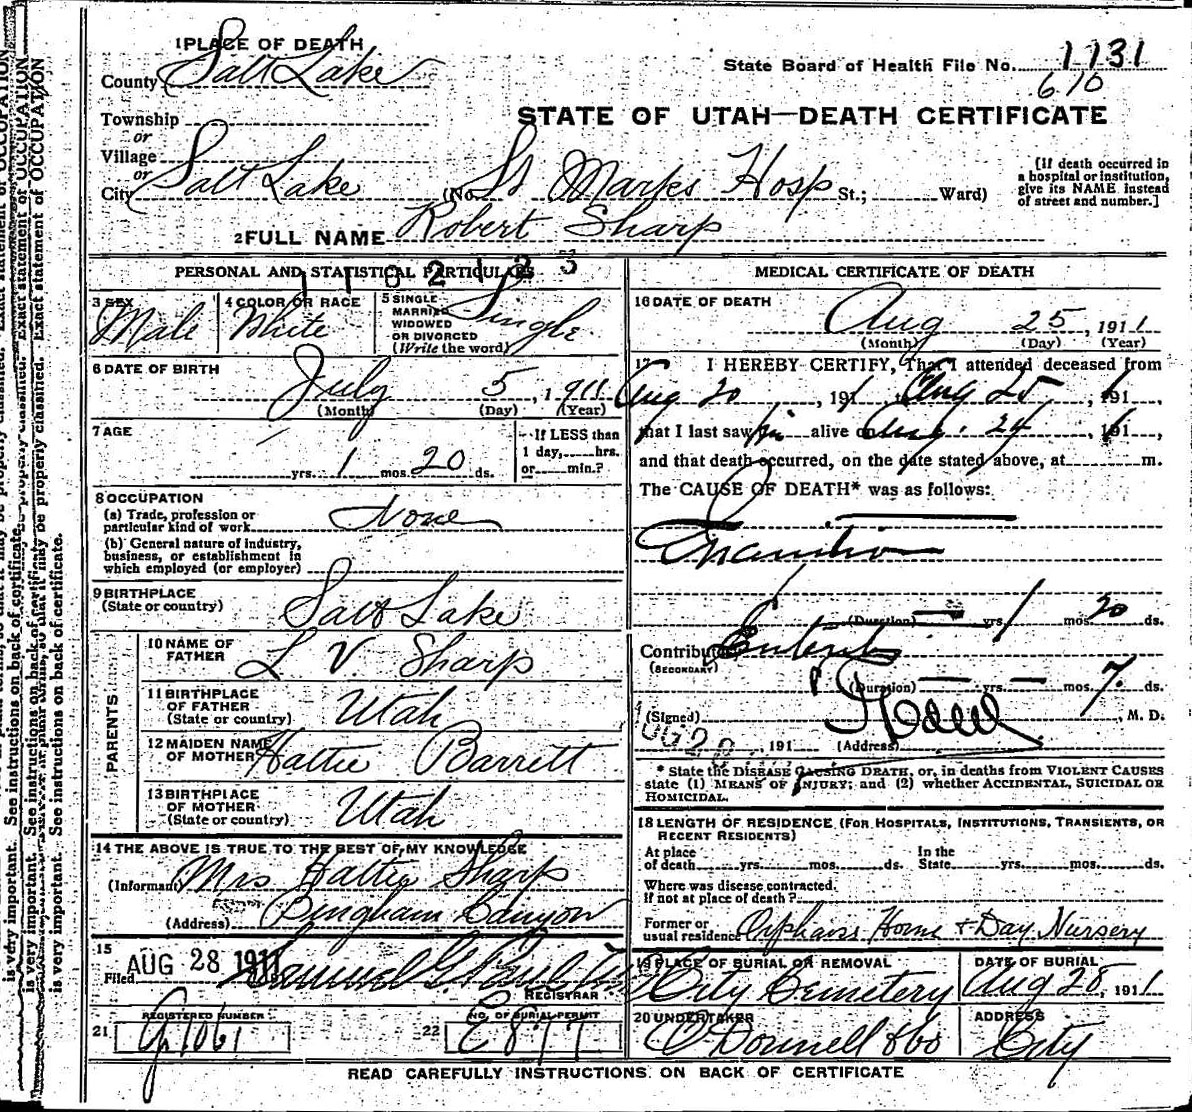 1 PLACE OF DEATH
County Salt Lake
State Board of Health File No. 1131
610
Township
STATE OF UTAH—DEATH CERTIFICATE
or
Village
or
City Salt Lake (No. St Marks Hosp St.; Ward)
(If death occurred in a hospital or institution, give its NAME instead of street and number.]
2 FULL NAME Robert Sharp
PERSONAL AND STATISTICAL PARTICULARS
3 SEX Male
4 COLOR OR RACE White
5 SINGLE MARRIED WIDOWED OR DIVORCED (Write the word) Single
6 DATE OF BIRTH July 5, 1911
(Month) (Day) (Year)
7 AGE
yrs. 1 mos. 20 ds.
If LESS than 1 day, hrs. or min.?
8 OCCUPATION
(a) Trade, profession or particular kind of work None
(b) General nature of industry, business, or establishment in which employed (or employer)
9 BIRTHPLACE (State or country) Salt Lake
PARENTS
10 NAME OF FATHER L V Sharp
11 BIRTHPLACE OF FATHER (State or country) Utah
12 MAIDEN NAME OF MOTHER Hattie Barrett
13 BIRTHPLACE OF MOTHER (State or country) Utah
14 THE ABOVE IS TRUE TO THE BEST OF MY KNOWLEDGE
(Informant) Mrs Hattie Sharp
(Address) Bingham Canyon
15
Filed AUG 28 1911
REGISTRAR
21 REGISTERED NUMBER
22 NO. OF BURIAL PERMIT E 877
MEDICAL CERTIFICATE OF DEATH
16 DATE OF DEATH
Aug 25, 1911
(Month) (Day) (Year)
17 I HEREBY CERTIFY, That I attended deceased from
Aug 20, 191 , Aug 25, 191 ,
that I last saw him alive on Aug. 24, 191 ,
and that death occurred, on the date stated above, at m.
The CAUSE OF DEATH* was as follows:
Inanition
(Duration) yrs. 1 mos. 20 ds.
Contributory Enteritis
(SECONDARY)
(Duration) yrs. mos. 7. ds.
(Signed) , M. D.
AUG 28, 191 (Address)
* State the DISEASE CAUSING DEATH, or, in deaths from VIOLENT CAUSES
state (1) MEANS OF INJURY; and (2) whether ACCIDENTAL, SUICIDAL OR
HOMICIDAL.
18 LENGTH OF RESIDENCE (FOR HOSPITALS, INSTITUTIONS, TRANSIENTS, OR
RECENT RESIDENTS)
At place of death yrs. mos. ds. In the State yrs. mos. ds.
Where was disease contracted.
If not at place of death?
Former or usual residence Orphans Home & Day Nursery
19 PLACE OF BURIAL OR REMOVAL City Cemetery
DATE OF BURIAL Aug 28, 1911
20 UNDERTAKER O'Donnell & Co
ADDRESS City
READ CAREFULLY INSTRUCTIONS ON BACK OF CERTIFICATE
is very important. See instructions on back of certificate.
Exact statement of OCCUPATION